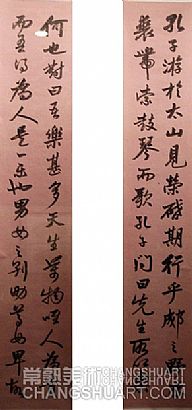 孔子游於太山見榮啓期行乎郕之野
裘帶索鼓琴而歌孔子問曰先生所以
何也對曰吾樂甚多天生萬物唯人為
而吾得為人是一樂也男女之別男尊女卑故
CHANGSHUART.COM